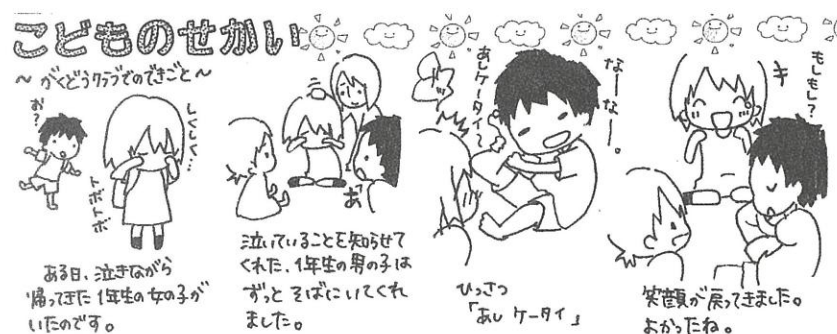 こどものせかい
~ がくどうクラブでのできごと~
お?
しくしく…
トボトボ
ある日、泣きながら
帰ってきた1年生の女の子が
いたのです。
あ
泣いていることを知らせて
くれた、1年生の男の子は
ずっと そばにいてくれ
ました。
あしケータイ〜
なーなー。
ひっさつ
「あし ケータイ」
もしもし?
笑顔が戻ってきました。
よかったね。